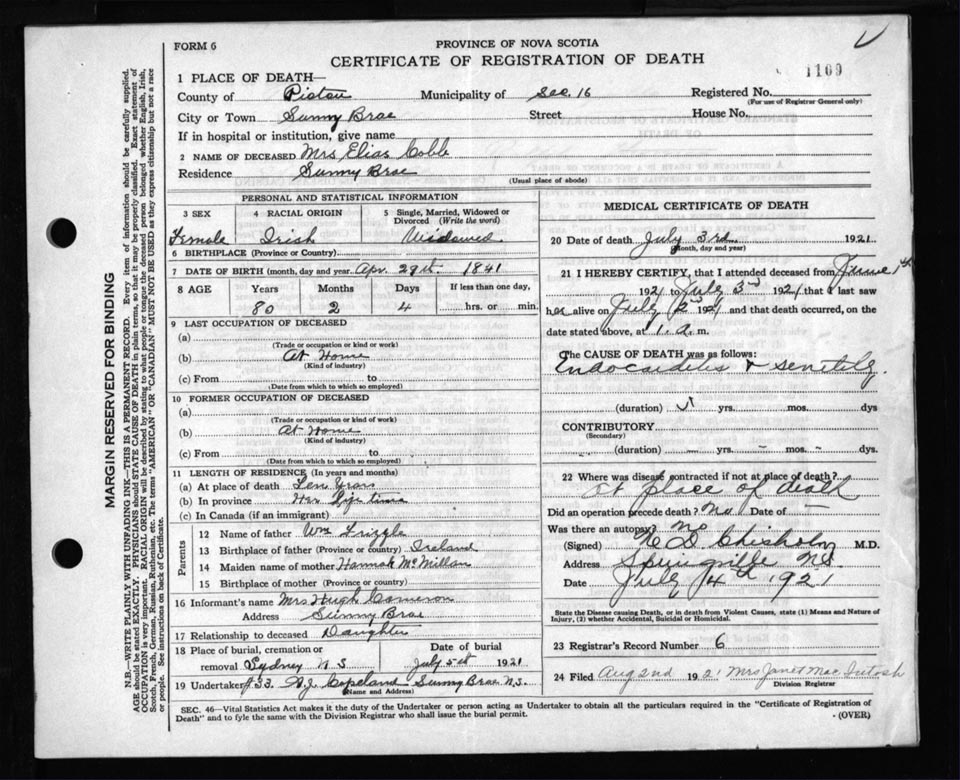 FORM 6
PROVINCE OF NOVA SCOTIA
CERTIFICATE OF REGISTRATION OF DEATH
1109
1 PLACE OF DEATH—
County of Pictou Municipality of Sec. 16 Registered No.
(For use of Registrar General only)
City or Town Sunny Brae Street House No.
If in hospital or institution, give name
2 NAME OF DECEASED Mrs Elias Cobb
Residence Sunny Brae
(Usual place of abode)
PERSONAL AND STATISTICAL INFORMATION
3 SEX 4 RACIAL ORIGIN 5 Single, Married, Widowed or Divorced (Write the word)
Female Irish Widowed
6 BIRTHPLACE (Province or Country)
7 DATE OF BIRTH (month, day and year) Apr. 29th. 1841
8 AGE Years Months Days If less than one day,
80 2 4 hrs. or min.
9 LAST OCCUPATION OF DECEASED
(a)
(Trade or occupation or kind or work)
(b) At Home
(Kind of industry)
(c) From to
(Date from which to which so employed)
10 FORMER OCCUPATION OF DECEASED
(a)
(Trade or occupation or kind of work)
(b) At Home
(Kind of industry)
(c) From to
(Date from which to which so employed)
11 LENGTH OF RESIDENCE (In years and months)
(a) At place of death Ten Years
(b) In province Her Life time
(c) In Canada (if an immigrant)
Parents
12 Name of father Wm Frizzle
13 Birthplace of father (Province or country) Ireland
14 Maiden name of mother Hannah McMillan
15 Birthplace of mother (Province or country)
16 Informant's name Mrs Hugh Cameron
Address Sunny Brae
17 Relationship to deceased Daughter
18 Place of burial, cremation or Date of burial
removal Sydney N S July 5th 1921
19 Undertaker #33 A.J. Copeland Sunny Brae N.S.
(Name and Address)
MEDICAL CERTIFICATE OF DEATH
20 Date of death July 3rd 1921
(Month, day and year)
21 I HEREBY CERTIFY, that I attended deceased from June 1st
1921 to July 3rd 1921 that I last saw
her alive on July 2nd 1921 and that death occurred, on the
date stated above, at 1. a. m.
The CAUSE OF DEATH was as follows:
Endocarditis & senility.
(duration) yrs. mos. dys
CONTRIBUTORY
(Secondary)
(duration) — yrs. — mos. — dys.
22 Where was disease contracted if not at place of death?
At place of death
Did an operation precede death? No Date of —
Was there an autopsy? No
(Signed) Chisholm M.D.
Address Springville N.S.
Date July 4th 1921
State the Disease causing Death, or in death from Violent Causes, state (1) Means and Nature of Injury, (2) whether Accidental, Suicidal or Homicidal.
23 Registrar's Record Number 6
24 Filed Aug 2nd 1921 Mrs Janet MacIntosh
Division Registrar
SEC. 46—Vital Statistics Act makes it the duty of the Undertaker or person acting as Undertaker to obtain all the particulars required in the "Certificate of Registration of
Death" and to fyle the same with the Division Registrar who shall issue the burial permit. (OVER)
MARGIN RESERVED FOR BINDING
N.B.—WRITE PLAINLY WITH UNFADING INK—THIS IS A PERMANENT RECORD. Every item of information should be carefully supplied.
AGE should be stated EXACTLY. PHYSICIANS should STATE CAUSE OF DEATH in plain terms, so that it may be properly classified. Exact statement of
OCCUPATION is very important. RACIAL ORIGIN will be described by stating to what people or tongue the deceased person belonged whether English, Irish,
Scotch, French, German, Russian, Ruthenian, etc. The terms "AMERICAN" OR "CANADIAN" MUST NOT BE USED as they express citizenship but not a race
or people. See instructions on back of Certificate.